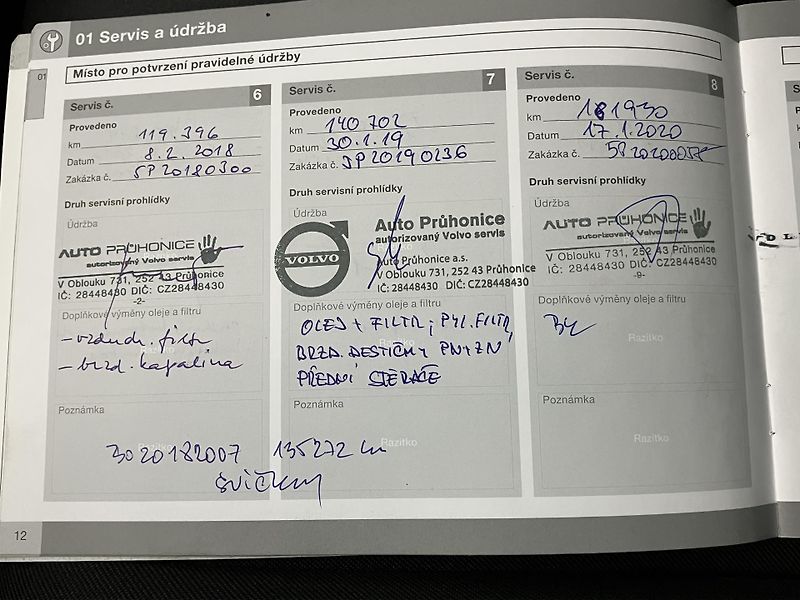 01 Servis a údržba
01
Místo pro potvrzení pravidelné údržby
Servis č. 6
Provedeno
km 119.396
Datum 8.2.2018
Zakázka č. SP20180300
Druh servisní prohlídky
Údržba
AUTO PRŮHONICE
autorizovaný Volvo servis
V Oblouku 731, 252 43 Průhonice
IČ: 28448430 DIČ: CZ28448430
-2-
Doplňkové výměny oleje a filtru
- vzduch. filtr
- brzd. kapalina
Razítko
Poznámka
3020182007 135272 km
svíčky
Razítko
Servis č. 7
Provedeno
km 140 702
Datum 30.1.19
Zakázka č. JP20190236
Druh servisní prohlídky
Údržba
VOLVO
Auto Průhonice
autorizovaný Volvo servis
Auto Průhonice a.s.
V Oblouku 731, 252 43 Průhonice
IČ: 28448430 DIČ: CZ28448430
Doplňkové výměny oleje a filtru
OLEJ + FILTR, PYL. FILTR,
BRZD. DESTIČKY
PŘEDNÍ STĚRAČE
Poznámka
Razítko
Servis č. 8
Provedeno
km
Datum 17.1.2020
Zakázka č.
Druh servisní prohlídky
Údržba
AUTO PRŮHONICE
autorizovaný Volvo servis
V Oblouku 731, 252 43 Průhonice
IČ: 28448430 DIČ: CZ28448430
-9-
Doplňkové výměny oleje a filtru
Razítko
Poznámka
Razítko
12